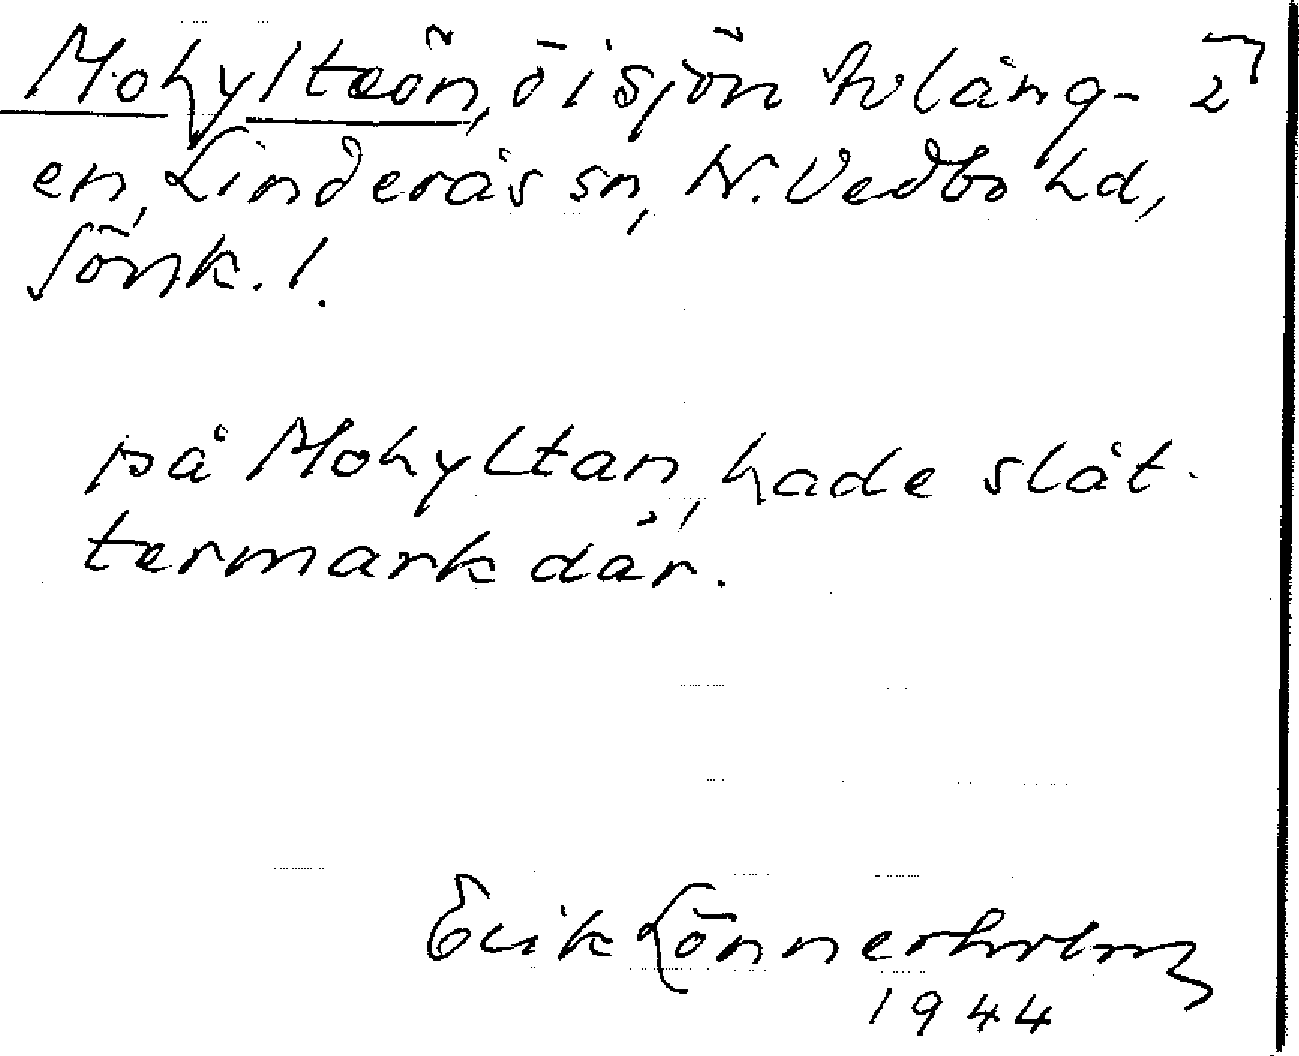 Mohylteön, ö i sjön Noläng- 2
en, Linderås sn, N. Vedbo hd,
Jönk. l.
på Mohyltan, hade slåt-
termark där.
Erik Lönnerholm
1944